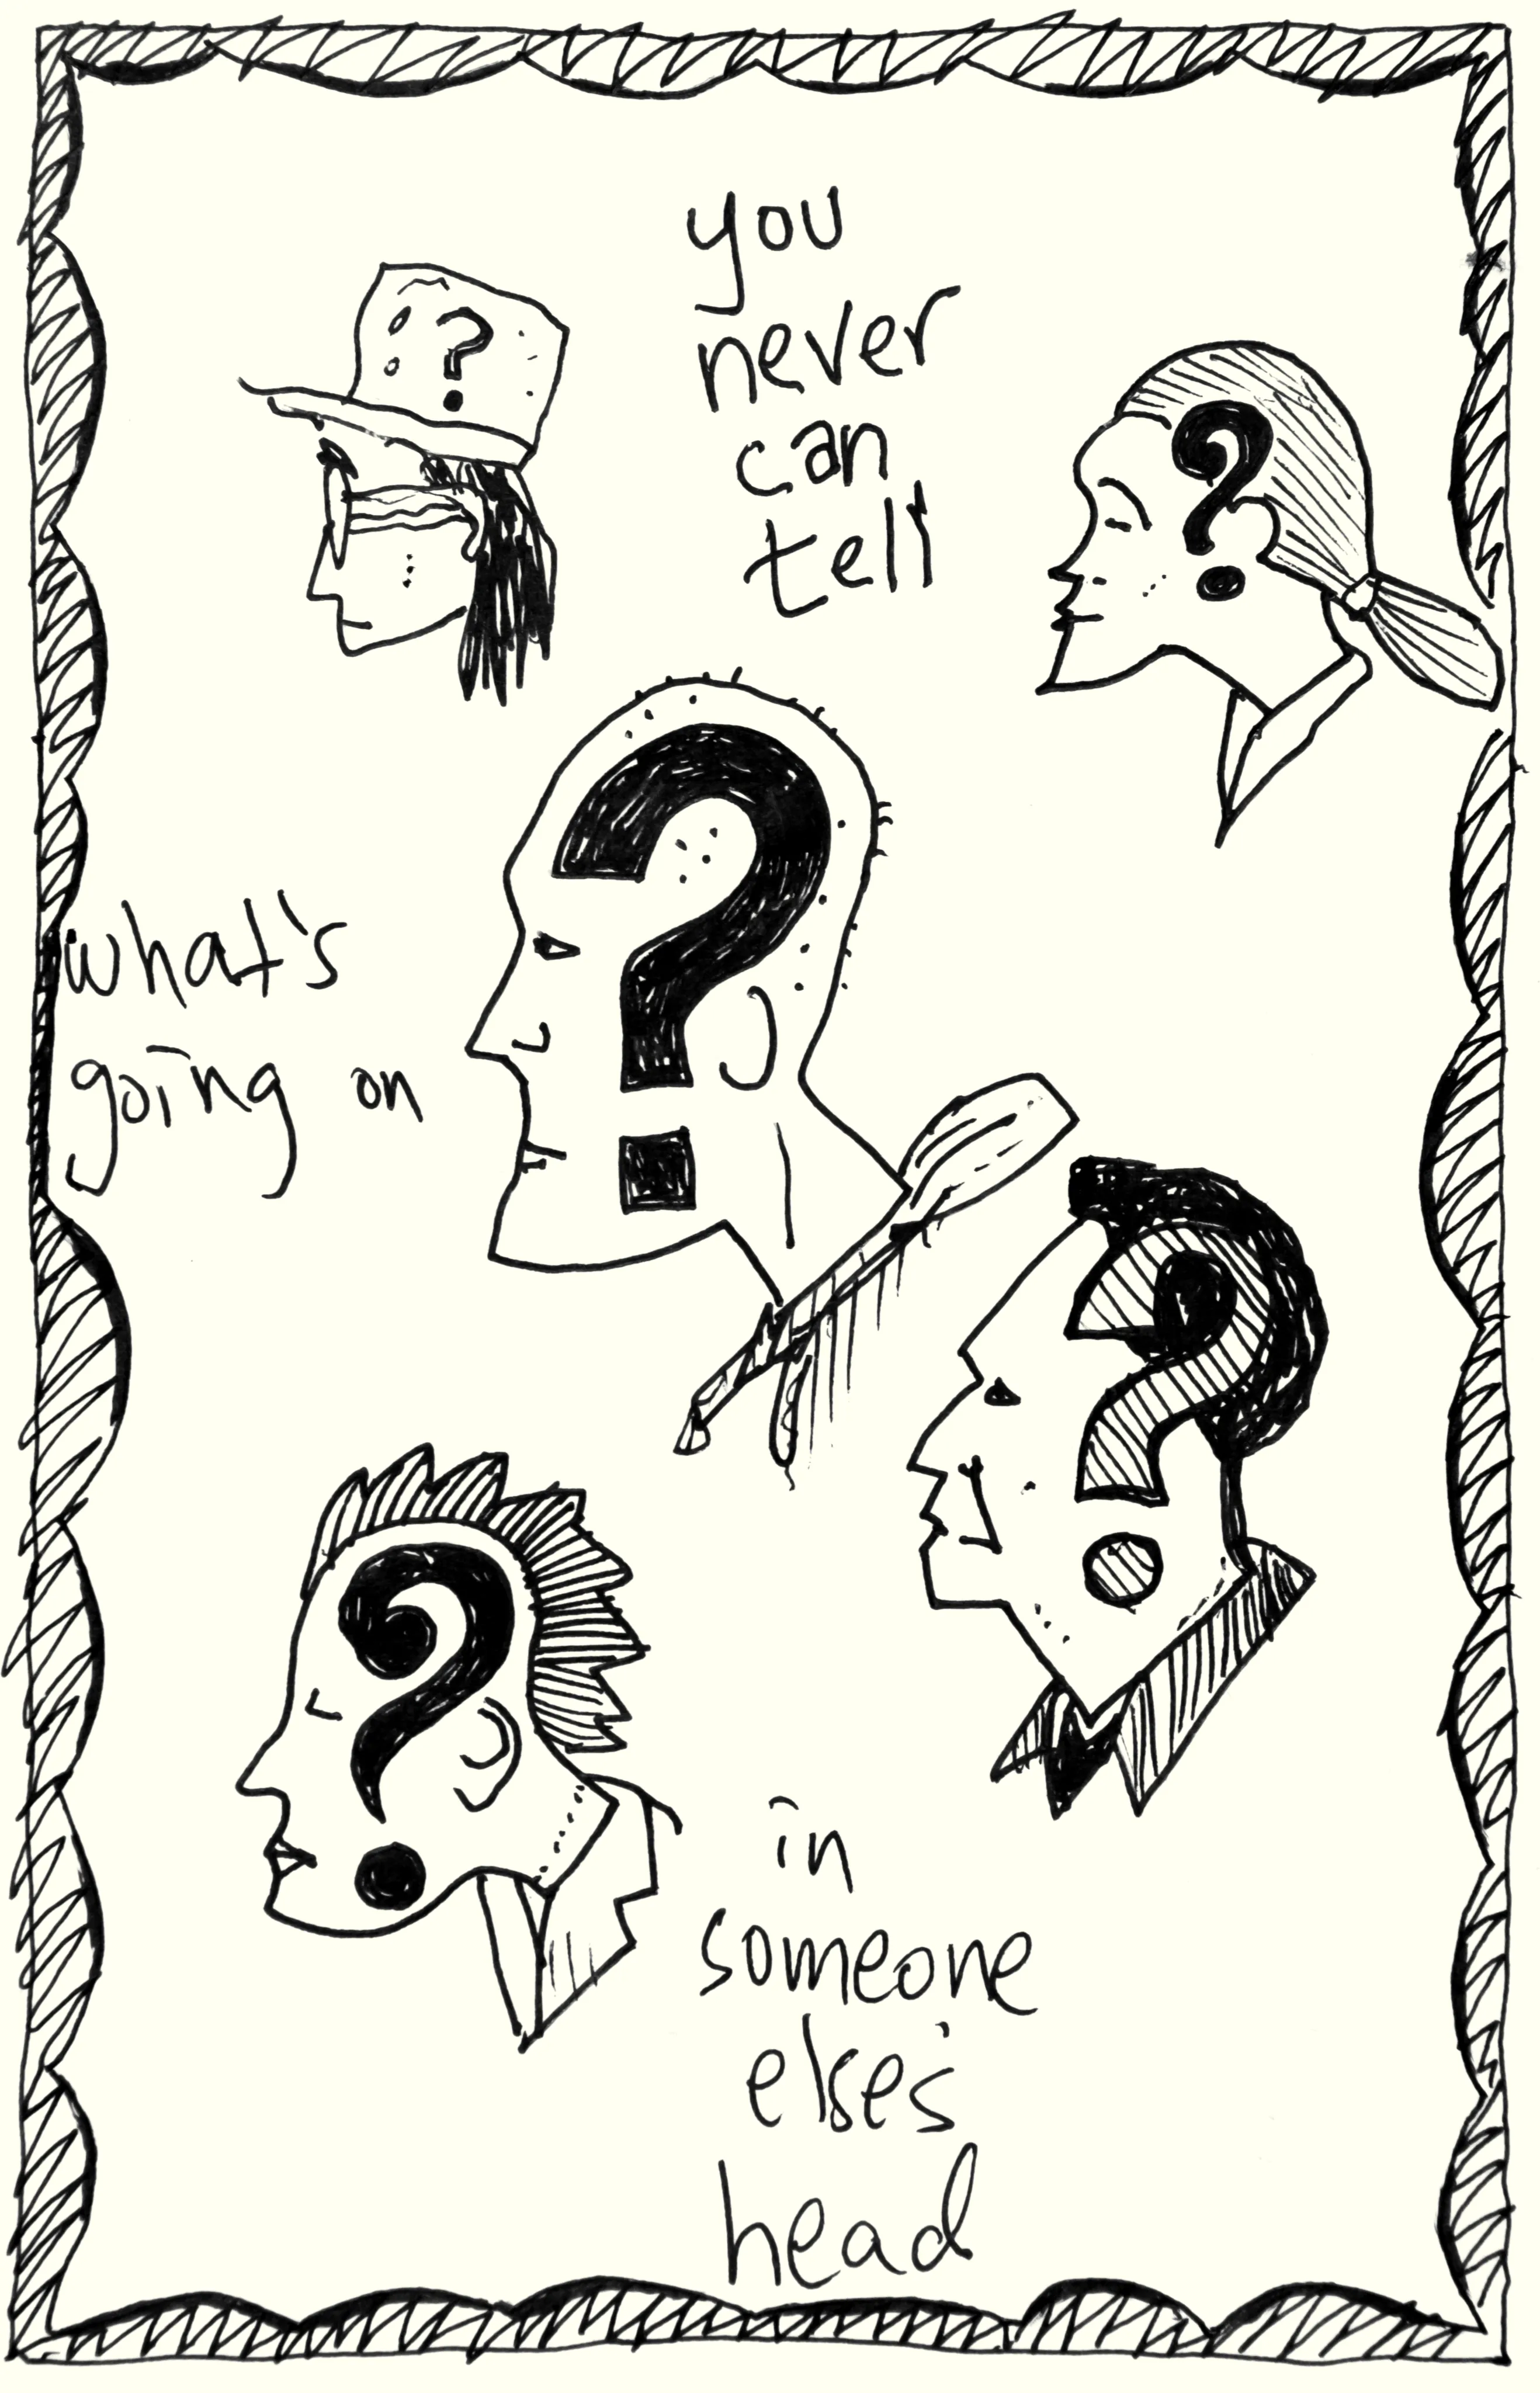 you
never
can
tell
what's
going on
in
someone
else's
head